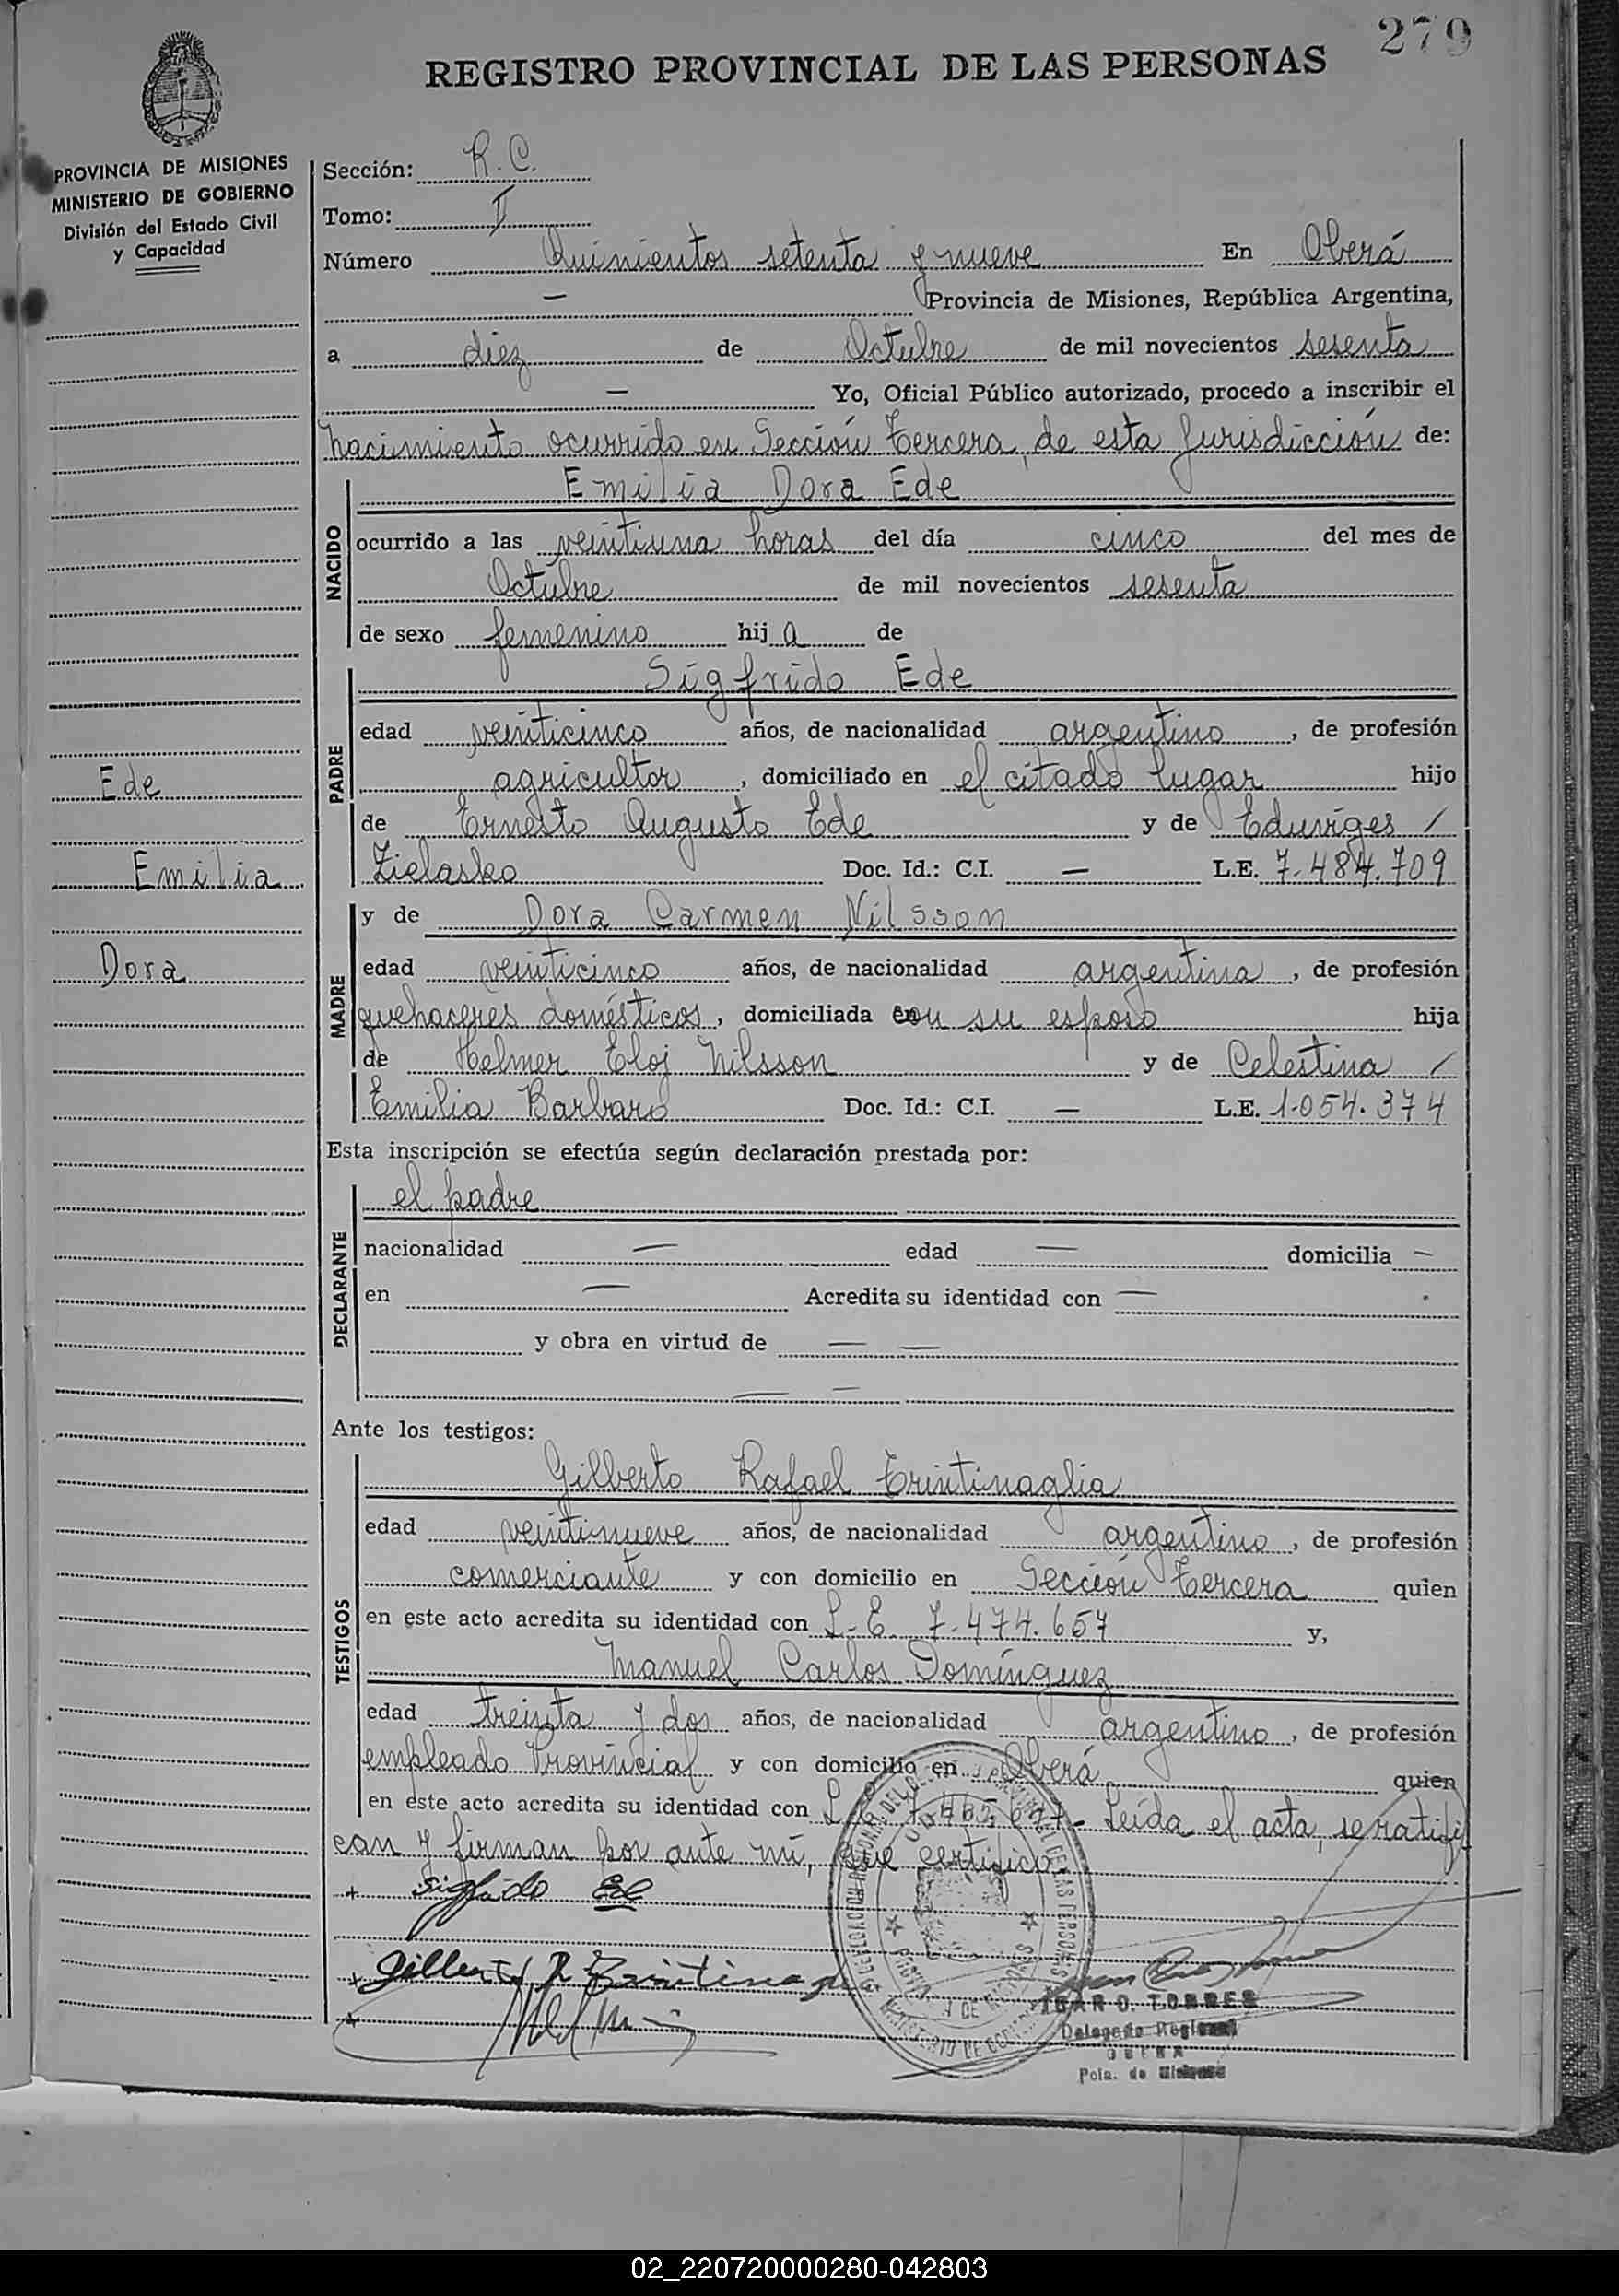 279
REGISTRO PROVINCIAL DE LAS PERSONAS
PROVINCIA DE MISIONES
MINISTERIO DE GOBIERNO
División del Estado Civil
y Capacidad
Sección: R. C.
Tomo: II
Número Quinientos setenta y nueve En Oberá
— Provincia de Misiones, República Argentina,
a diez de Octubre de mil novecientos sesenta
— Yo, Oficial Público autorizado, procedo a inscribir el
nacimiento ocurrido en Sección Tercera, de esta Jurisdicción de:
NACIDO
Emilia Dora Ede
ocurrido a las veintiuna horas del día cinco del mes de
Octubre de mil novecientos sesenta
de sexo femenino hij a de
PADRE
Sigfrido Ede
edad veinticinco años, de nacionalidad argentino, de profesión
agricultor, domiciliado en el citado lugar hijo
de Ernesto Augusto Ede y de Eduviges /
Zielasko Doc. Id.: C.I. — L.E. 7.484.709
Ede
Emilia
Dora
MADRE
y de Dora Carmen Nilsson
edad veinticinco años, de nacionalidad argentina, de profesión
quehaceres domésticos, domiciliada con su esposo hija
de Helmer Eloj Nilsson y de Celestina /
Emilia Barbaro Doc. Id.: C.I. — L.E. 1.054.374
Esta inscripción se efectúa según declaración prestada por:
DECLARANTE
el padre
nacionalidad — edad — domicilia —
en — Acredita su identidad con —
y obra en virtud de — —
— —
Ante los testigos:
TESTIGOS
Gilberto Rafael Trintinaglia
edad veintinueve años, de nacionalidad argentino, de profesión
comerciante y con domicilio en Sección Tercera quien
en este acto acredita su identidad con L. E. 7.474.657 y,
Manuel Carlos Domínguez
edad treinta y dos años, de nacionalidad argentino, de profesión
empleado Provincial y con domicilio en Oberá quien
en este acto acredita su identidad con L. Leída el acta, se ratifi
can y firman por ante mí, que certifico.
+ Sigfrido Ede
+ Gilberto R Trintinaglia
O. TORRES
Delegado Regional
OBERA
Pcia. de Misiones
02_220720000280-042803